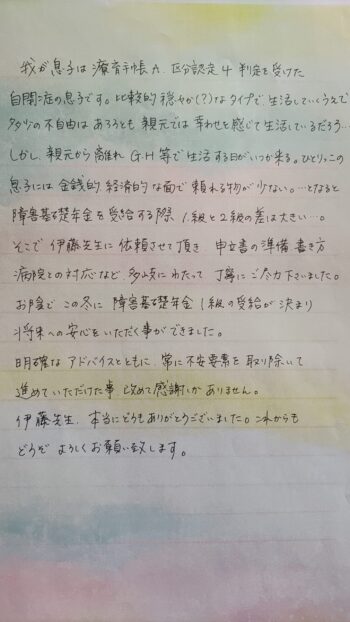 我が息子は療育手帳A、区分認定4 判定を受けた
自閉症の息子です。比較的 穏やか(?)な タイプで 生活していくうえで
多少の不自由はあろうとも 親元では 幸わせと感じて生活しているだろう…
しかし、親元から離れ G.H 等で生活する日がいつか来る。ひとりっこの
息子には 金銭的 経済的な面で 頼れる物が少ない。…となると
障害基礎年金を受給する際 1級と2級の差は大きい…。
そこで 伊藤先生に依頼させて頂き 申立書の準備 書き方
病院との対応など 多岐にわたって 丁寧にご尽力下さいました。
お陰で この冬に 障害基礎年金 1級の受給が決まり
将来への安心をいただく事ができました。
明確な アドバイスとともに、常に不安要素を 取り除いて
進めていただけた事 改めて感謝しかありません。
伊藤先生、本当にどうもありがとうございました。これからも
どうぞ よろしくお願い致します。